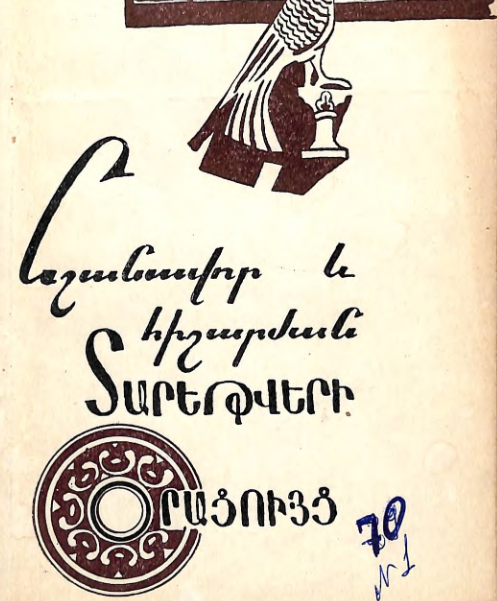 Նշանավոր և
հիշարժան
ՏԱՐԵԹՎԵՐԻ
ՕՐԱՑՈՒՅՑ
70
N 1